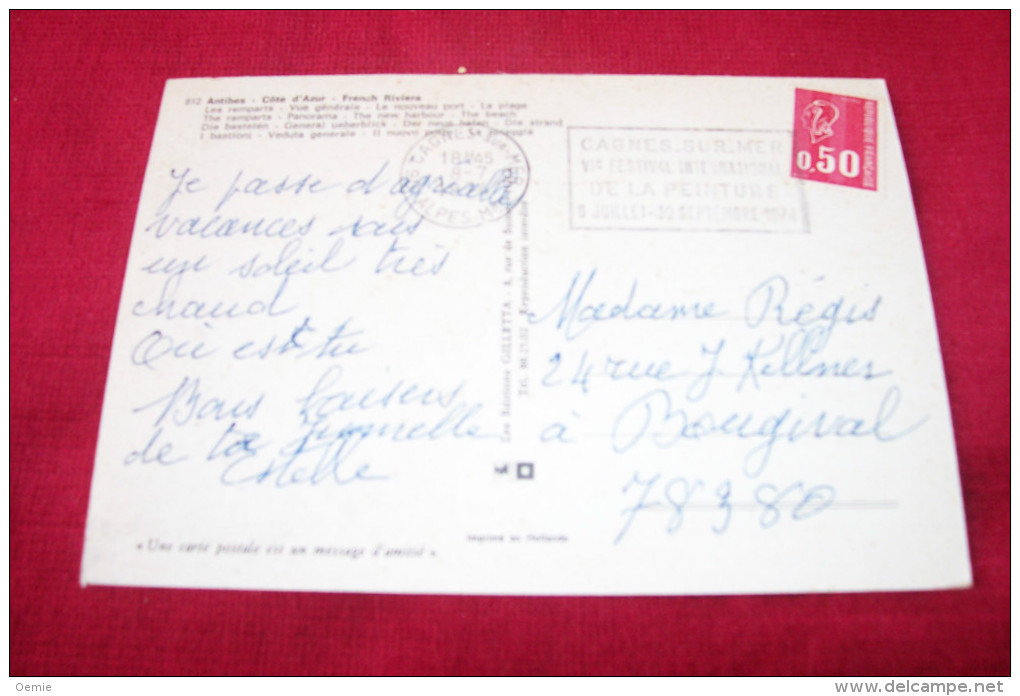 812 Antibes - Côte d'Azur - French Riviera
Les remparts - Vue générale - Le nouveau port - La plage
The ramparts - Panorama - The new harbour - The beach
Die basteien - General ueberblick - Der neue hafen - Die strand
I bastioni - Veduta generale - Il nuovo porto - La spiaggia
CAGNES-SUR-MER
18H45
8-7
ALPES-M
CAGNES-SUR-MER
VIe FESTIVAL INTERNATIONAL
DE LA PEINTURE
JUILLET-30 SEPTEMBRE 1974
0,50
RÉPUBLIQUE FRANÇAISE
Je passe d'agréables
vacances sous
un soleil très
chaud
Où est tu
Bons baisers
de ta jumelle
Estelle
Les Editions GILLETTA - 8, rue de
Tél. Reproduction interdite
Madame Régis
24 rue J. Kellner
à Bougival
78380
« Une carte postale est un message d'amitié »
Imprimé en Hollande
Oemie
www.delcampe.net